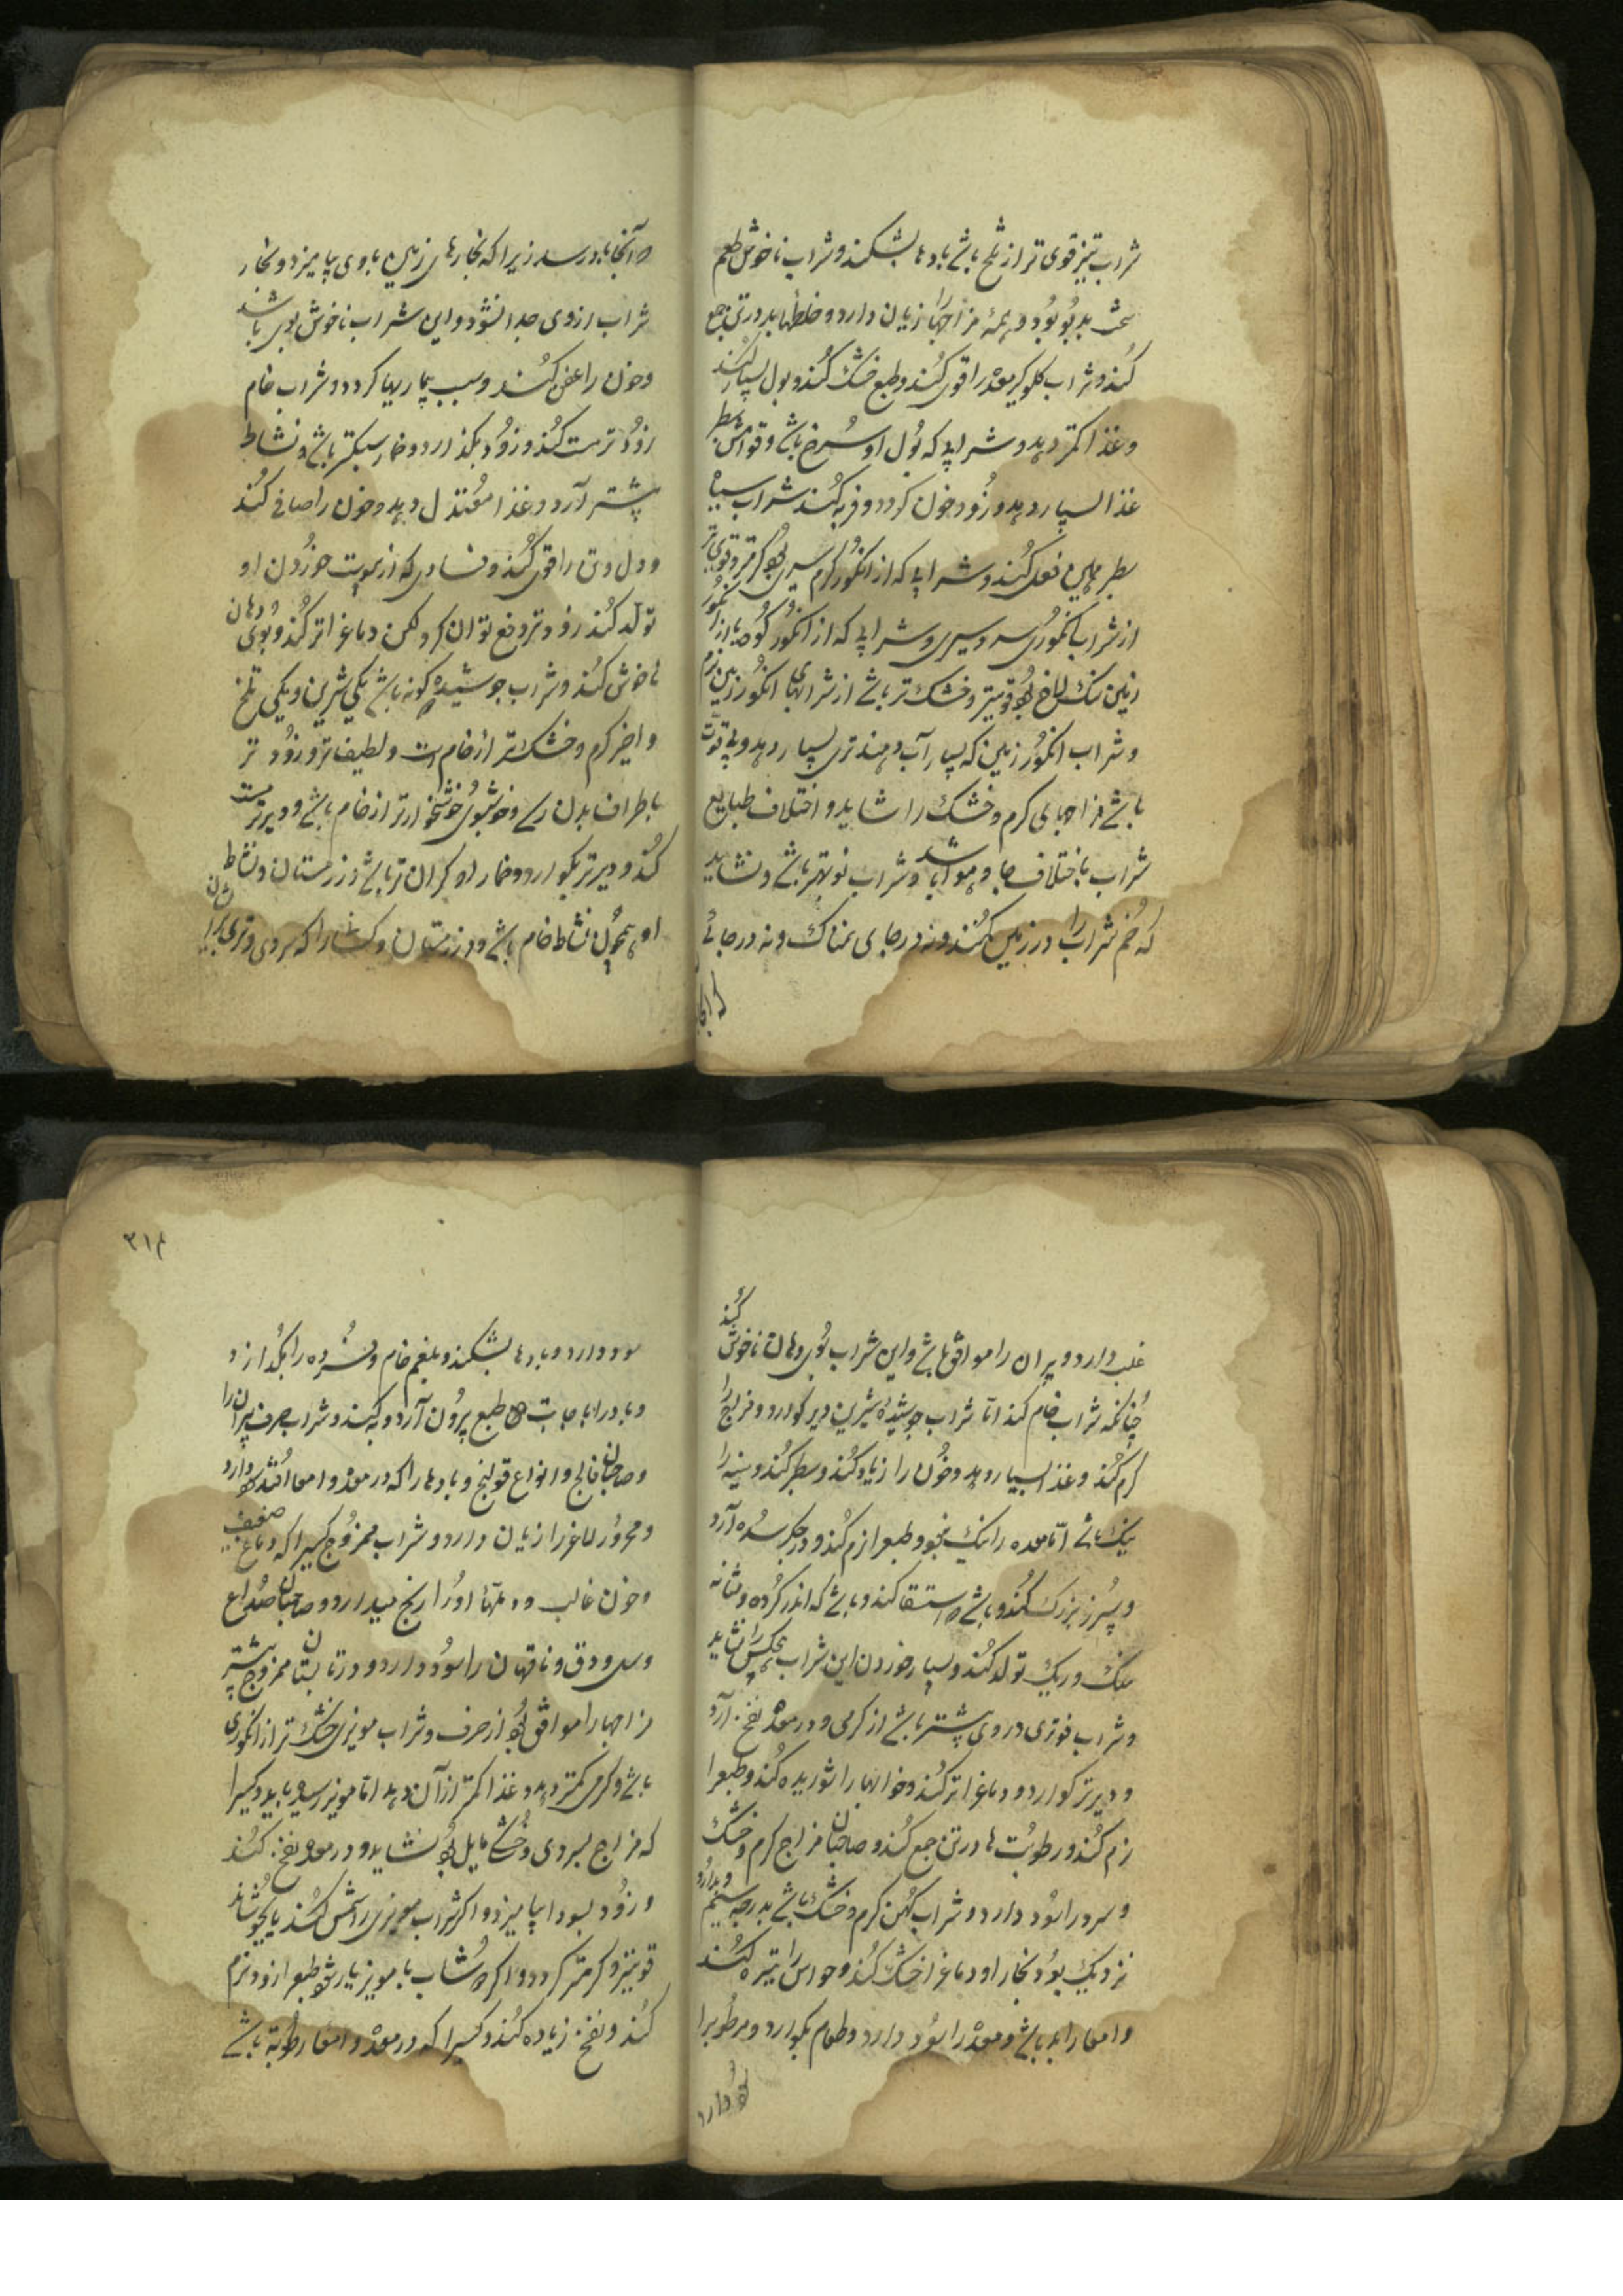 شراب تیز قوی تر از تلخ باشد بادها بشکند و شراب ناخوش طعم
سخت بدبو بود و همهٔ مزاجها را زیان دارد و خلطها بد در تن جمع
کند و شراب گلوگیر معده را قوی کند و طبع خشک کند و بول بسیار کند
و غذا کمتر دهد و شرابی که لون او سرخ باشد و قوامش سطبر
غذا بسیار دهد و زود خون گردد و فربه کند شراب سیاه
سطبر همین فعل کند و شرابی که از انگور گرم سیری بود گرمتر و قوی تر
از شراب انگوری سردسیری و شرابی که از انگور کوهی یا از انگور
زمین سنگلاخ بود قویتر و خشک تر باشد از شرابهای انگور زمین نرم
و شراب انگور زمین که بسیار آب دهند تری بسیار دهد و بی قوت
باشد مزاجهای گرم و خشک را شاید و اختلاف طبایع
شراب باختلاف جا و هوا باشد و شراب نو بهتر باشد و نشاید
که خم شراب را در زمین کنند و نه در جای نمناک و نه در جائے
که آنجا
آنجا باد رسد زیرا که بخارهای زمین با وی بیامیزد و بخار
شراب از وی جدا نشود و این شراب ناخوش بوی باشد
و خون را عفن کند و سبب بیماریها گردد و شراب خام
زود تر مست کند و زود بگذارد و خمار سبکتر باشد و نشاط
بیشتر آرد و غذا معتدل دهد و خون را صافی کند
و دل و تن را قوی کند و فسادی که از پیوست خوردن او
تولد کند زود تر دفع توان کرد لکن دماغ اثر کند و بوی دهان
ناخوش کند و شراب جوشیده دو گونه باشد یکی شیرین و یکی تلخ
و اخیر گرم و خشک تر از خام است و لطیف تر و زود تر
باطراف بدن رسد و خوشبوی خوشخوارتر از خام باشد و دیرتر مست
کند و دیرتر بگوارد و خمار او گران تر باشد در زمستان و نشاط
او همچون نشاط خام باشد و در زمستان و کسانرا که سردی و تری بر ایشان
غلبه دارد و پیران را موافق باشد و این شراب بوی دهان ناخوش کند
چنانکه شراب خام کند اما شراب جوشیدهٔ شیرین دیر گوارد و مزاج را
گرم کند و غذا بسیار دهد و خون را زیاد کند و سطبر کند و سینه را
نیک باشد اما معده را نیک نبود و طبع را نرم کند و در جگر سده آرد
و سپرز بزرگ کند و باشد که استسقا کند و باشد که اندر گرده و مثانه
سنگ و ریگ تولد کند و بسیار خوردن این شراب هیچکس را نشاید
و شراب فوتری در وی بیشتر باشد از گرمی و در معده نفخ آرد
و دیرتر گوارد و دماغ اثر کند و خوابها را شوریده کند و طبع را
نرم کند و رطوبت ها در تن جمع کند و صاحبان مزاج گرم و خشک
و سرد را سود دارد و شراب کهن گرم و خشک باشد بدرجه سیم
نزدیک بود و بخار او دماغ را خشک کند و حواس را تیره کند
و امعا را بد باشد و معده را سود دارد و طعام بگوارد و مرطوبرا
سود دارد
۳۱۴
سود دارد و بادها بشکند و بلغم خام و فسرده را بگدازد
و باد را با جابت طبع بیرون آرد و به کند و شراب صرف پیران را
و صاحبان فالج و انواع قولنج و بادها را که در معده و امعا افتد سود دارد
و محرور لاغر را زیان دارد و شراب ممزوج کسیرا که دماغ ضعیف
و خون غالب و دملها او را رنج میدارد و صاحبان صداع
و سل و دق و ناقهان را سود دارد و در تابستان ممزوج بیشتر
مزاجها را موافق بود از صرف و شراب مویزی خشک تر از انگوری
باشد و گرمی کمتر دهد و غذا کمتر از آن دهد اما مویز رسیده باید و کسیرا
که مزاج بسردی و خشکی مایل بود نشاید و در معده نفخ کند
و زود بسودا بیامیزد و اگر شراب مویزی را شمس کند یا بجوشاند
قویتر و گرمتر گردد و اگر دوشاب با مویز یار شود طبع را زود نرم
کند و نفخ زیاده کند و کسیرا که در معده و امعا رطوبة باشد